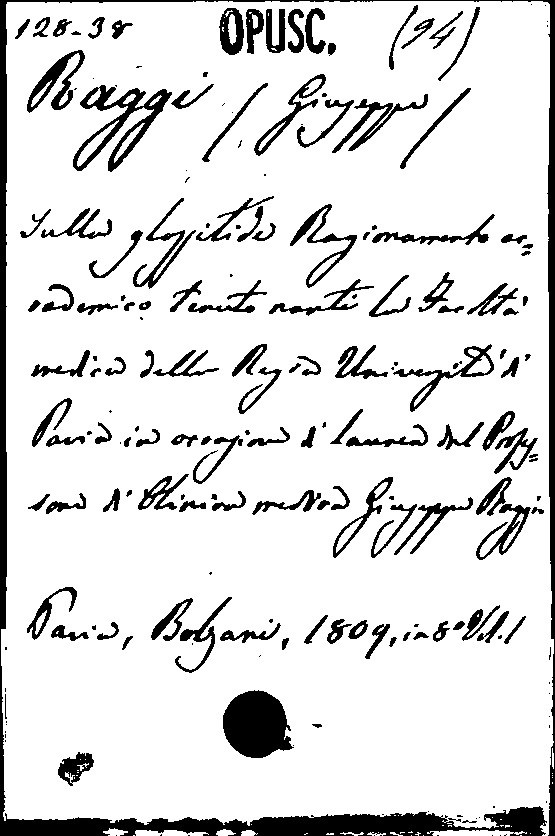 128-38 OPUSC. (94)
Raggi / Giuseppe /
Sulla glossitide Ragionamento ac=
cademico tenuto nanti la Facoltà
medica della Regia Università di
Pavia in occasione di laurea del Profes=
sore di Clinica medica Giuseppe Raggi
Pavia, Bolzani, 1809, in 8° Vol. 1